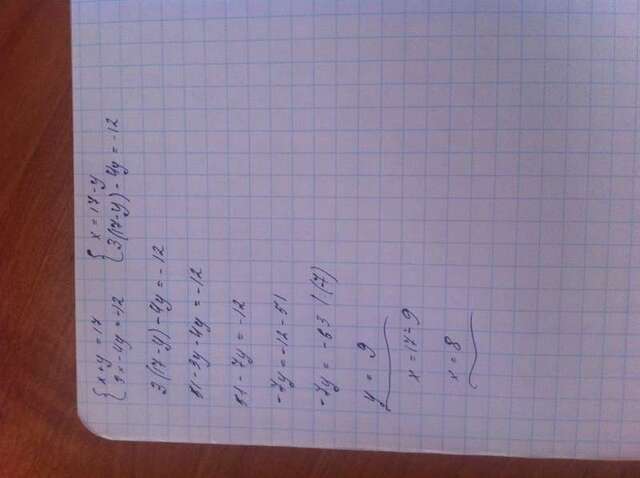 { x + y = 17
3x - 4y = -12
{ x = 17 - y
3(17 - y) - 4y = -12
3(17 - y) - 4y = -12
51 - 3y - 4y = -12
51 - 7y = -12
-7y = -12 - 51
-7y = -63 | (-7)
y = 9
x = 17 - 9
x = 8